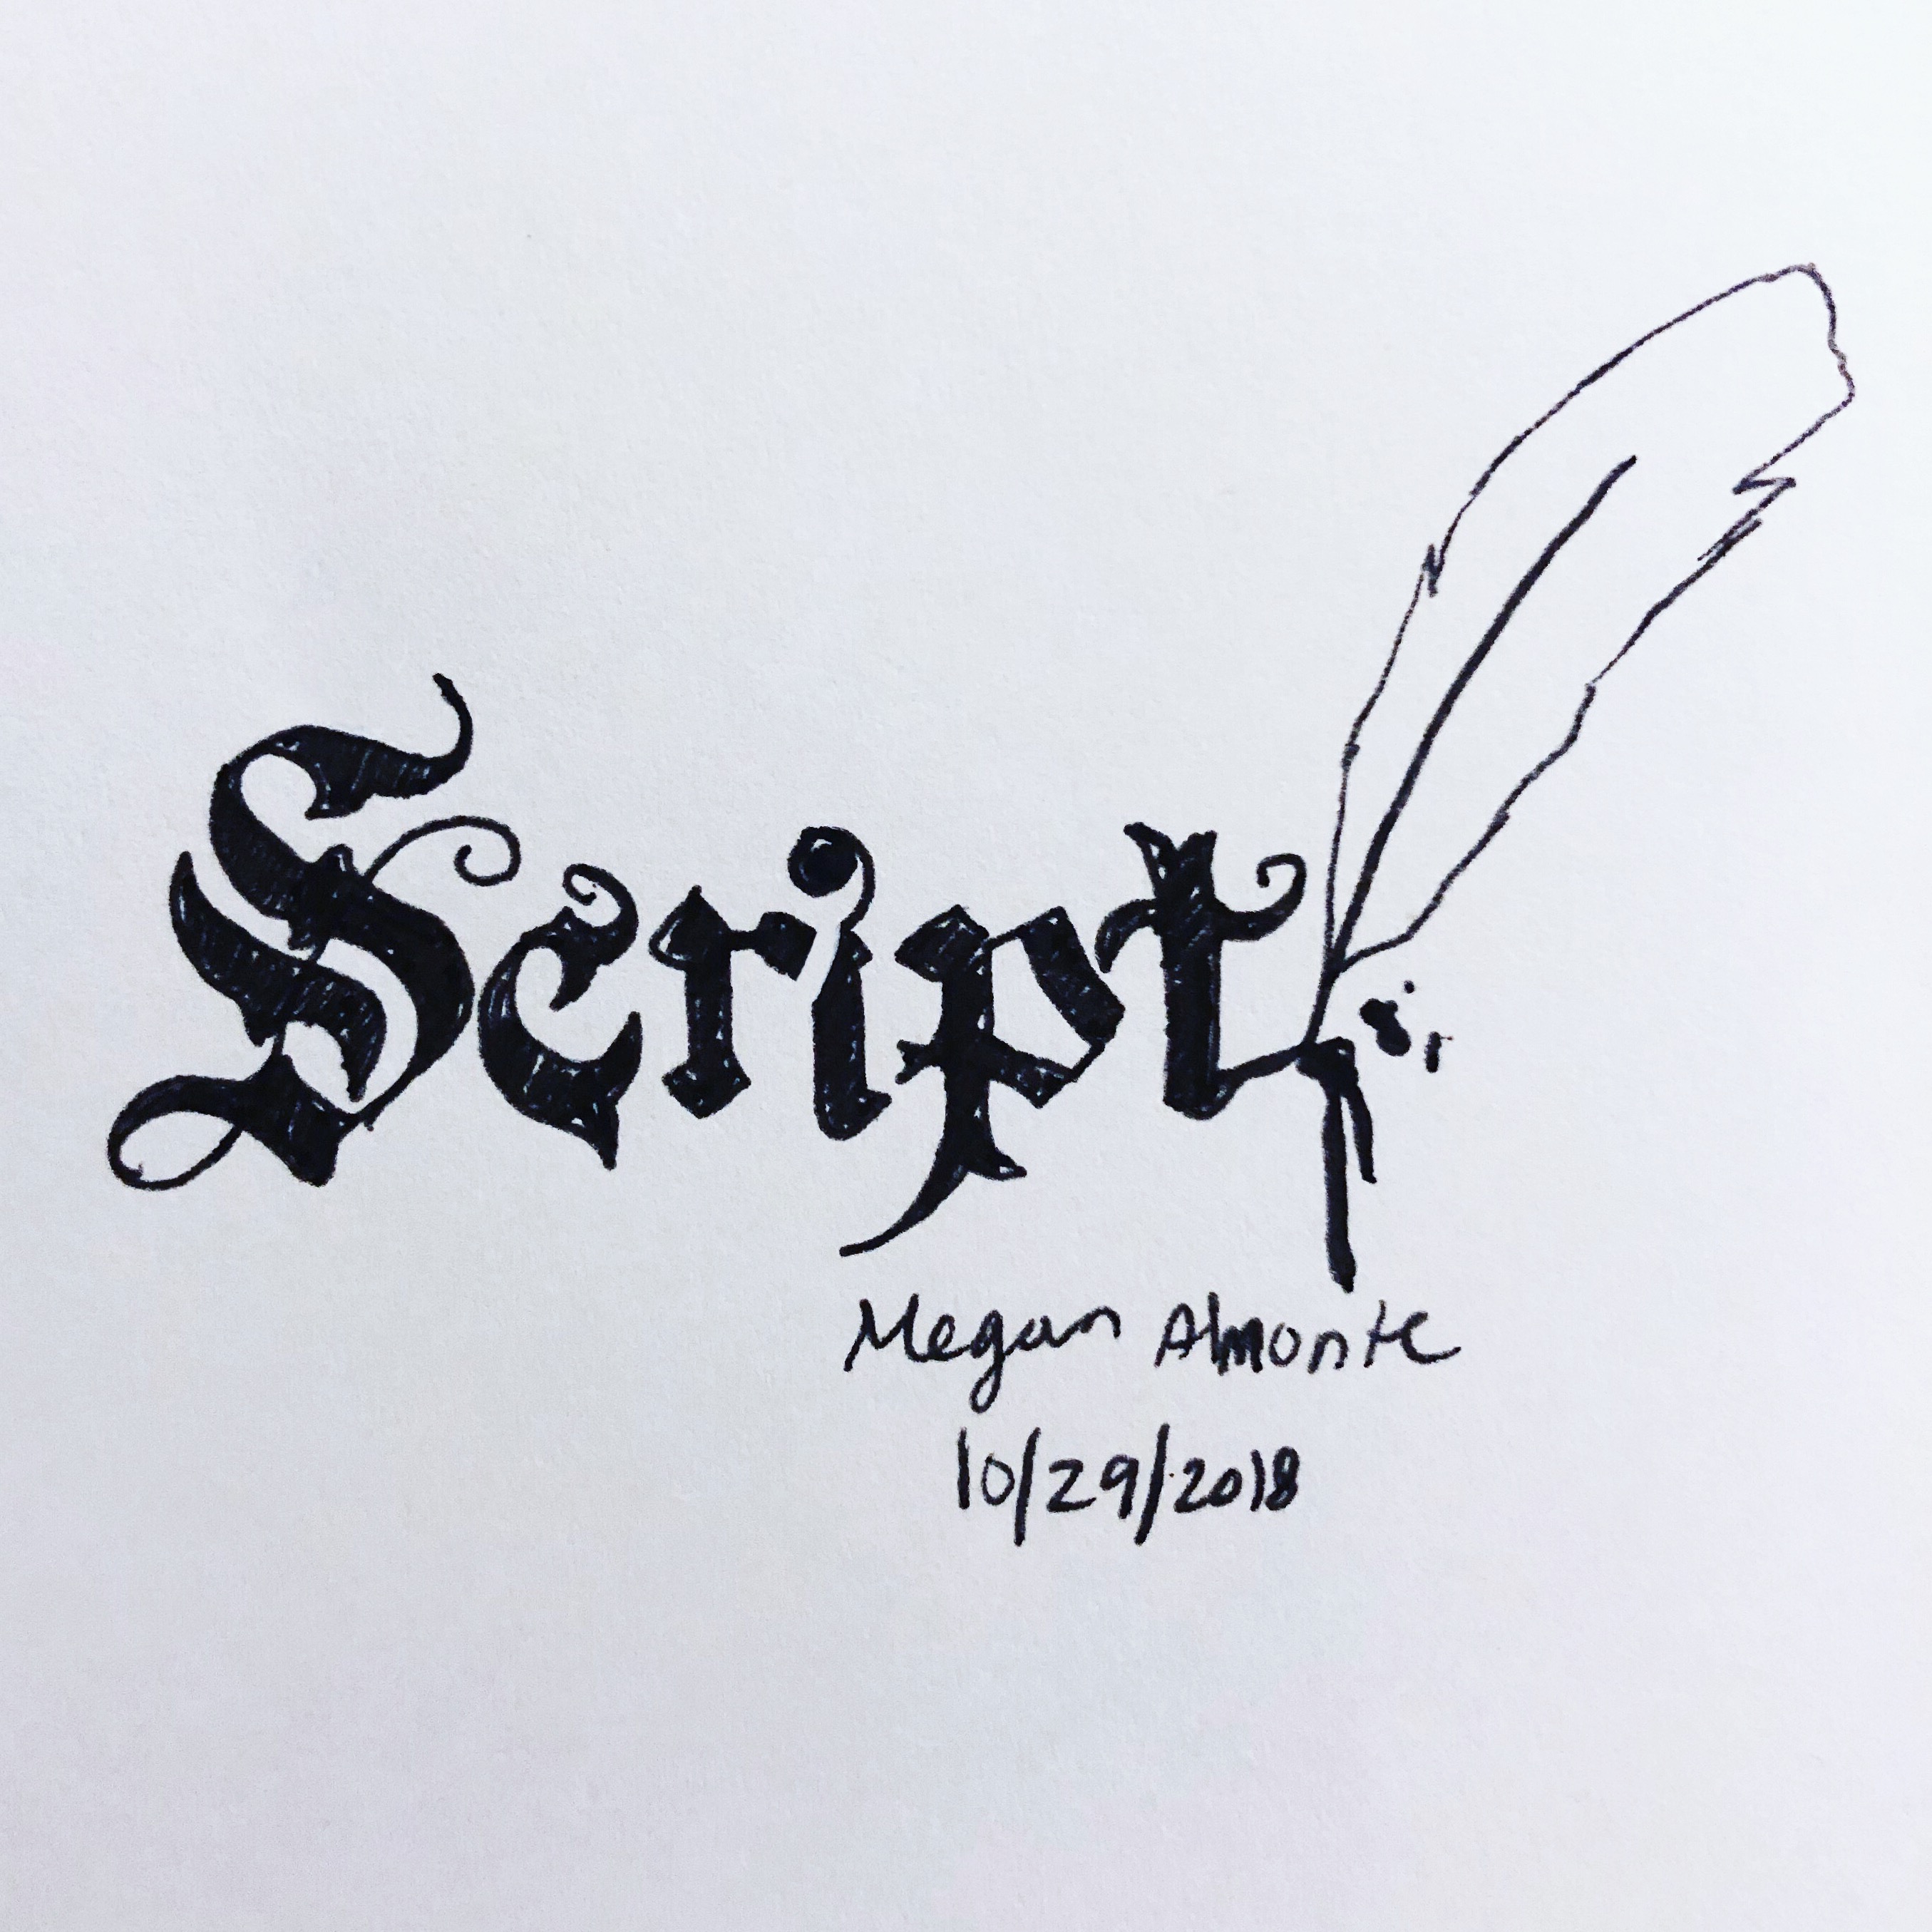 Script
Megan Almonte
10/29/2018